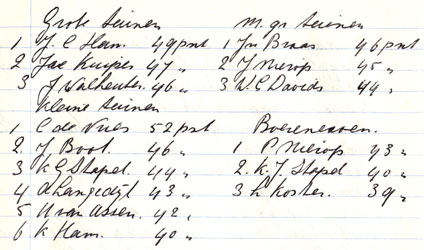 Grote Seinen
1 J. C Ham. 49 pnt
2 Jac Kuijper 47 "
3 J Walheuter 46 "
Kleine Seinen
1 C de Vries 52 pnt
2. J Boot. 46 "
3 K G Stapel 44 "
4 d Langedijk 43 "
5 H van Assen. 42 "
6 K Ham. 40 "
M. gr Seinen
1 Jn Braas 46 pnt
2 J Nierop 45 "
3 W. C Davids 44 "
Boerenerven.
1 P Nierop 43 "
2. K. J. Stapel 40 "
3 L Koster. 39 "